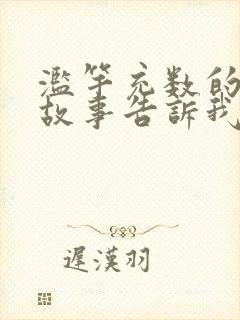 濫竽充数的
故事告訴我
遲漢羽